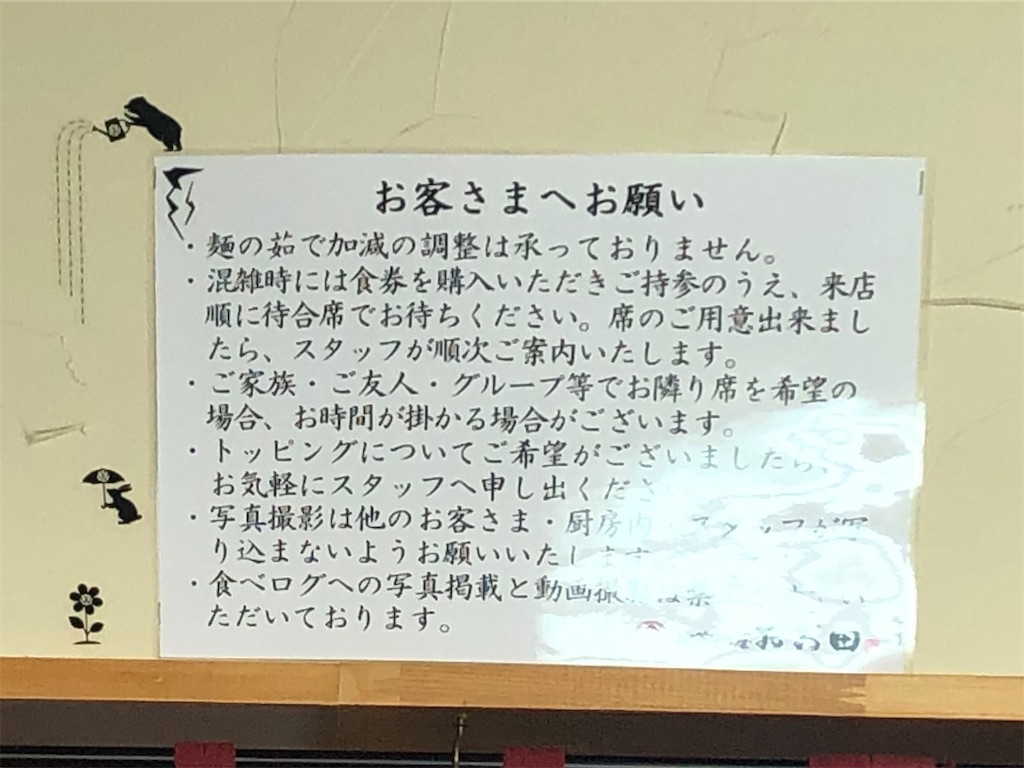 お客さまへお願い
・麺の茹で加減の調整は承っておりません。
・混雑時には食券を購入いただきご持参のうえ、来店
順に待合席でお待ちください。席のご用意出来まし
たら、スタッフが順次ご案内いたします。
・ご家族・ご友人・グループ等でお隣り席を希望の
場合、お時間が掛かる場合がございます。
・トッピングについてご希望がございましたら、
お気軽にスタッフへ申し出くださ
・写真撮影は他のお客さま・厨房内・スタッフが写
り込まないようお願いいたします
・食べログへの写真掲載と動画撮
ただいております。